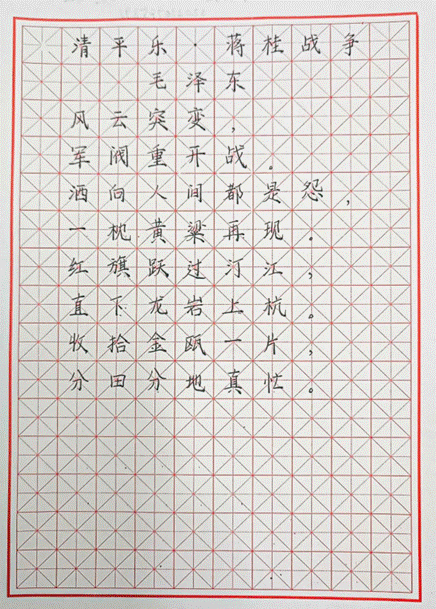 清平乐·蒋桂战争
毛泽东
风云突变，
军阀重开战。
洒向人间都是怨，
一枕黄粱再现。
红旗跃过汀江，
直下龙岩上杭。
收拾金瓯一片，
分田分地真忙。